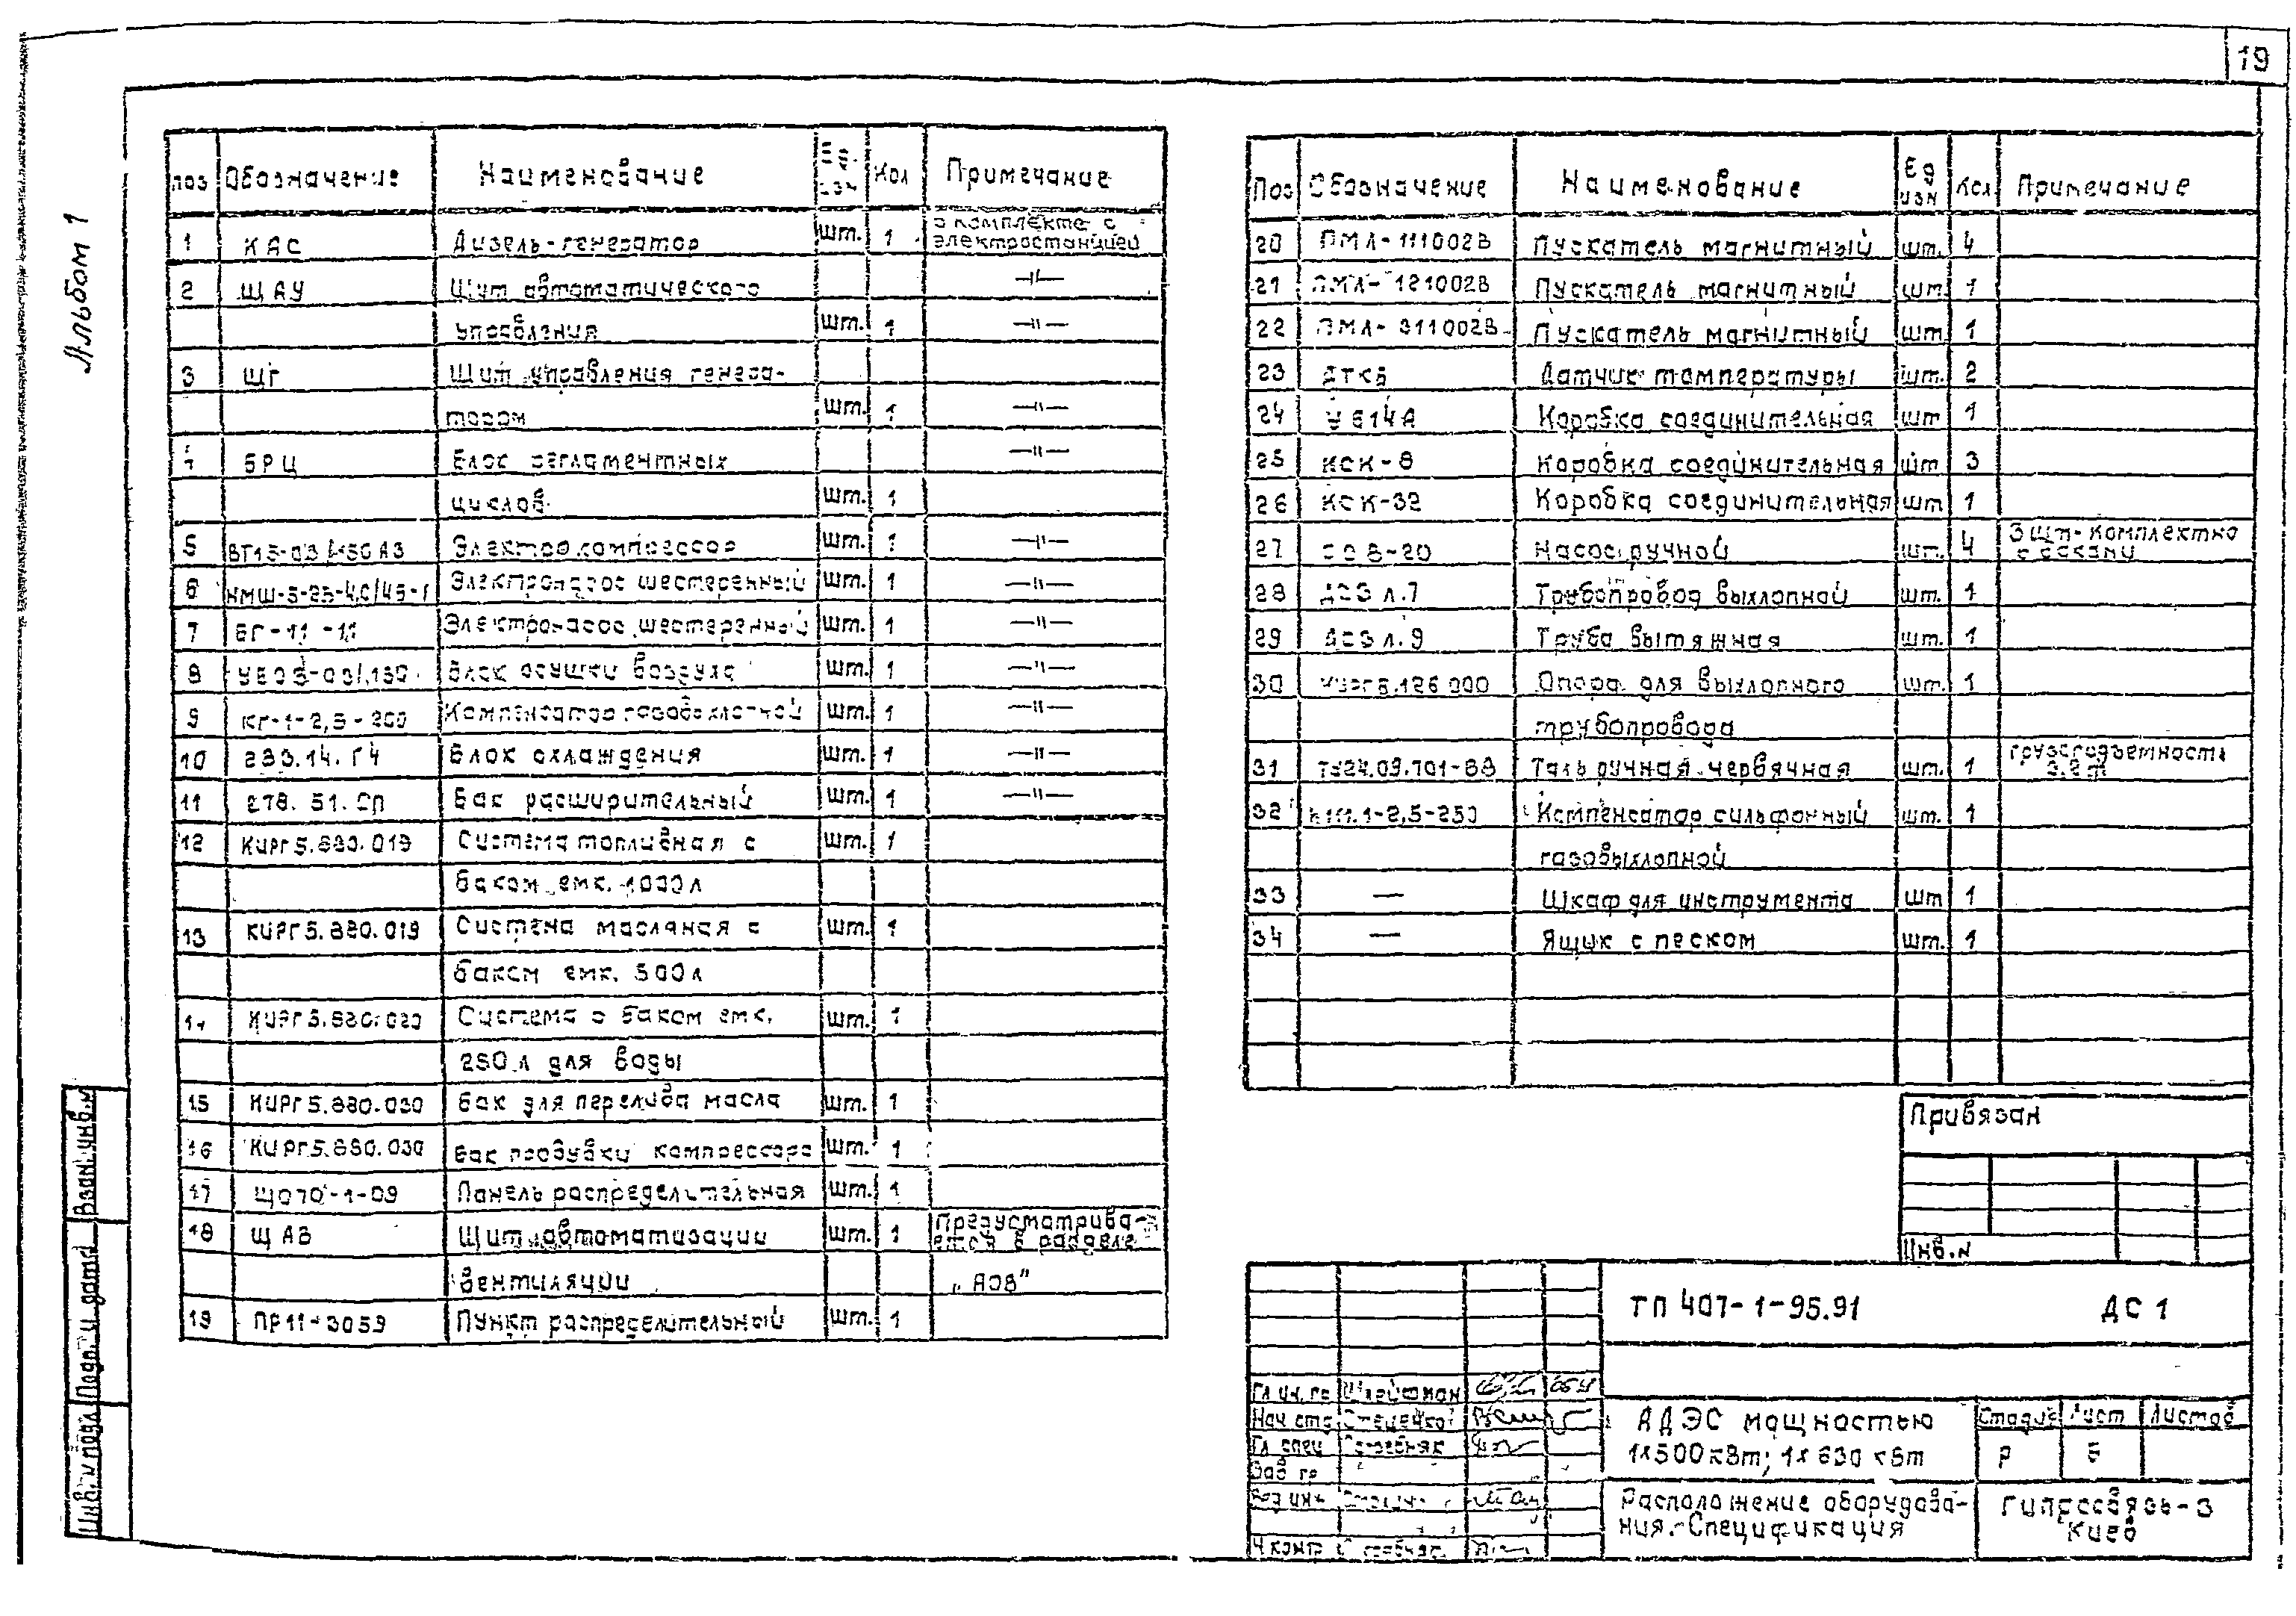 19
Альбом 1
поз Обозначение Наименование Ед. изм Кол Примечание
1 КАС Дизель-генератор шт. 1 в комплекте с
электростанцией
2 ЩАУ Щит автоматического —"—
управления шт. 1 —"—
3 ЩГ Щит управления генера-
тором шт. 1 —"—
4 БРЦ Блок регламентных —"—
циклов шт. 1
5 Электрокомпрессор шт. 1 —"—
6 НМШ-5-25-4,0/45-1 Электронасос шестеренный шт. 1 —"—
7 БГ-11-11 Электронасос шестеренный шт. 1 —"—
8 Блок осушки воздуха шт. 1 —"—
9 КГ-1-2,5-200 Компенсатор газовыхлопной шт. 1 —"—
10 283.14.Г4 Блок охлаждения шт. 1 —"—
11 278.51.СП Бак расширительный шт. 1 —"—
12 КИРГ5.880.019 Система топливная с шт. 1
баком емк. 1000л
13 КИРГ5.880.019 Система масляная с шт. 1
баком емк. 500л
14 КИРГ5.880.020 Система с баком емк. шт. 1
250л для воды
15 КИРГ5.880.030 Бак для перелива масла шт. 1
16 КИРГ5.880.030 Бак продувки компрессора шт. 1
17 ЩО70-1-09 Панель распределительная шт. 1
18 ЩАВ Щит автоматизации шт. 1 Предусматрива-
ется в разделе
вентиляции „АОВ"
19 ПР11-3059 Пункт распределительный шт. 1
Поз Обозначение Наименование Ед изм Кол Примечание
20 ПМЛ-111002В Пускатель магнитный шт. 4
21 ПМЛ-121002В Пускатель магнитный шт 1
22 ПМЛ-311002В Пускатель магнитный шт 1
23 ДТКБ Датчик температуры шт. 2
24 У614А Коробка соединительная шт 1
25 КСК-8 Коробка соединительная шт 3
26 КСК-32 Коробка соединительная шт 1
27 Насос ручной шт. 4 3 шт-комплектно
с баками
28 ДСЭ л.7 Трубопровод выхлопной шт. 1
29 ДСЭ л.9 Труба вытяжная шт. 1
30 КИРГ6.126.000 Опора для выхлопного шт. 1
трубопровода
31 ТУ24.09.701-88 Таль ручная червячная шт. 1 грузоподъемность
3.2т
32 Компенсатор сильфонный шт. 1
газовыхлопной
33 — Шкаф для инструмента шт 1
34 — Ящик с песком шт. 1
Привязан
Инв.N
ТП 407-1-95.91 ДС 1
Гл.инж.пр Шлейфман
Нач.отд Стецечко
Гл.спец
Зав гр
Вед инж
Н.контр
АДЭС мощностью
1х500кВт; 1х630 кВт
Стадия Лист Листов
Р 6
Расположение оборудова-
ния. Спецификация
Гипросвязь-3
Киев
Взам.инв.N
Подп. и дата
Инв.N подл